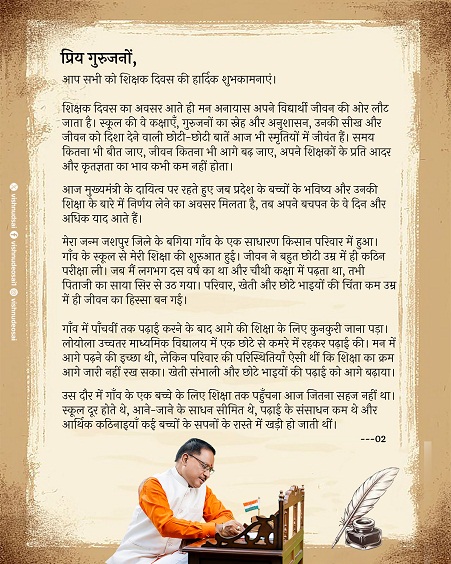 प्रिय गुरुजनों,
आप सभी को शिक्षक दिवस की हार्दिक शुभकामनाएं।
शिक्षक दिवस का अवसर आते ही मन अनायास अपने विद्यार्थी जीवन की ओर लौट
जाता है। स्कूल की वे कक्षाएँ, गुरुजनों का स्नेह और अनुशासन, उनकी सीख और
जीवन को दिशा देने वाली छोटी-छोटी बातें आज भी स्मृतियों में जीवंत हैं। समय
कितना भी बीत जाए, जीवन कितना भी आगे बढ़ जाए, अपने शिक्षकों के प्रति आदर
और कृतज्ञता का भाव कभी कम नहीं होता।
आज मुख्यमंत्री के दायित्व पर रहते हुए जब प्रदेश के बच्चों के भविष्य और उनकी
शिक्षा के बारे में निर्णय लेने का अवसर मिलता है, तब अपने बचपन के वे दिन और
अधिक याद आते हैं।
मेरा जन्म जशपुर जिले के बगिया गाँव के एक साधारण किसान परिवार में हुआ।
गाँव के स्कूल से मेरी शिक्षा की शुरुआत हुई। जीवन ने बहुत छोटी उम्र में ही कठिन
परीक्षा ली। जब मैं लगभग दस वर्ष का था और चौथी कक्षा में पढ़ता था, तभी
पिताजी का साया सिर से उठ गया। परिवार, खेती और छोटे भाइयों की चिंता कम उम्र
में ही जीवन का हिस्सा बन गई।
गाँव में पाँचवीं तक पढ़ाई करने के बाद आगे की शिक्षा के लिए कुनकुरी जाना पड़ा।
लोयोला उच्चतर माध्यमिक विद्यालय में एक छोटे से कमरे में रहकर पढ़ाई की। मन में
आगे पढ़ने की इच्छा थी, लेकिन परिवार की परिस्थितियाँ ऐसी थीं कि शिक्षा का क्रम
आगे जारी नहीं रख सका। खेती संभाली और छोटे भाइयों की पढ़ाई को आगे बढ़ाया।
उस दौर में गाँव के एक बच्चे के लिए शिक्षा तक पहुँचना आज जितना सहज नहीं था।
स्कूल दूर होते थे, आने-जाने के साधन सीमित थे, पढ़ाई के संसाधन कम थे और
आर्थिक कठिनाइयाँ कई बच्चों के सपनों के रास्ते में खड़ी हो जाती थीं।
---02
vishnudsai
vishnudeosai1
vishnudeosai